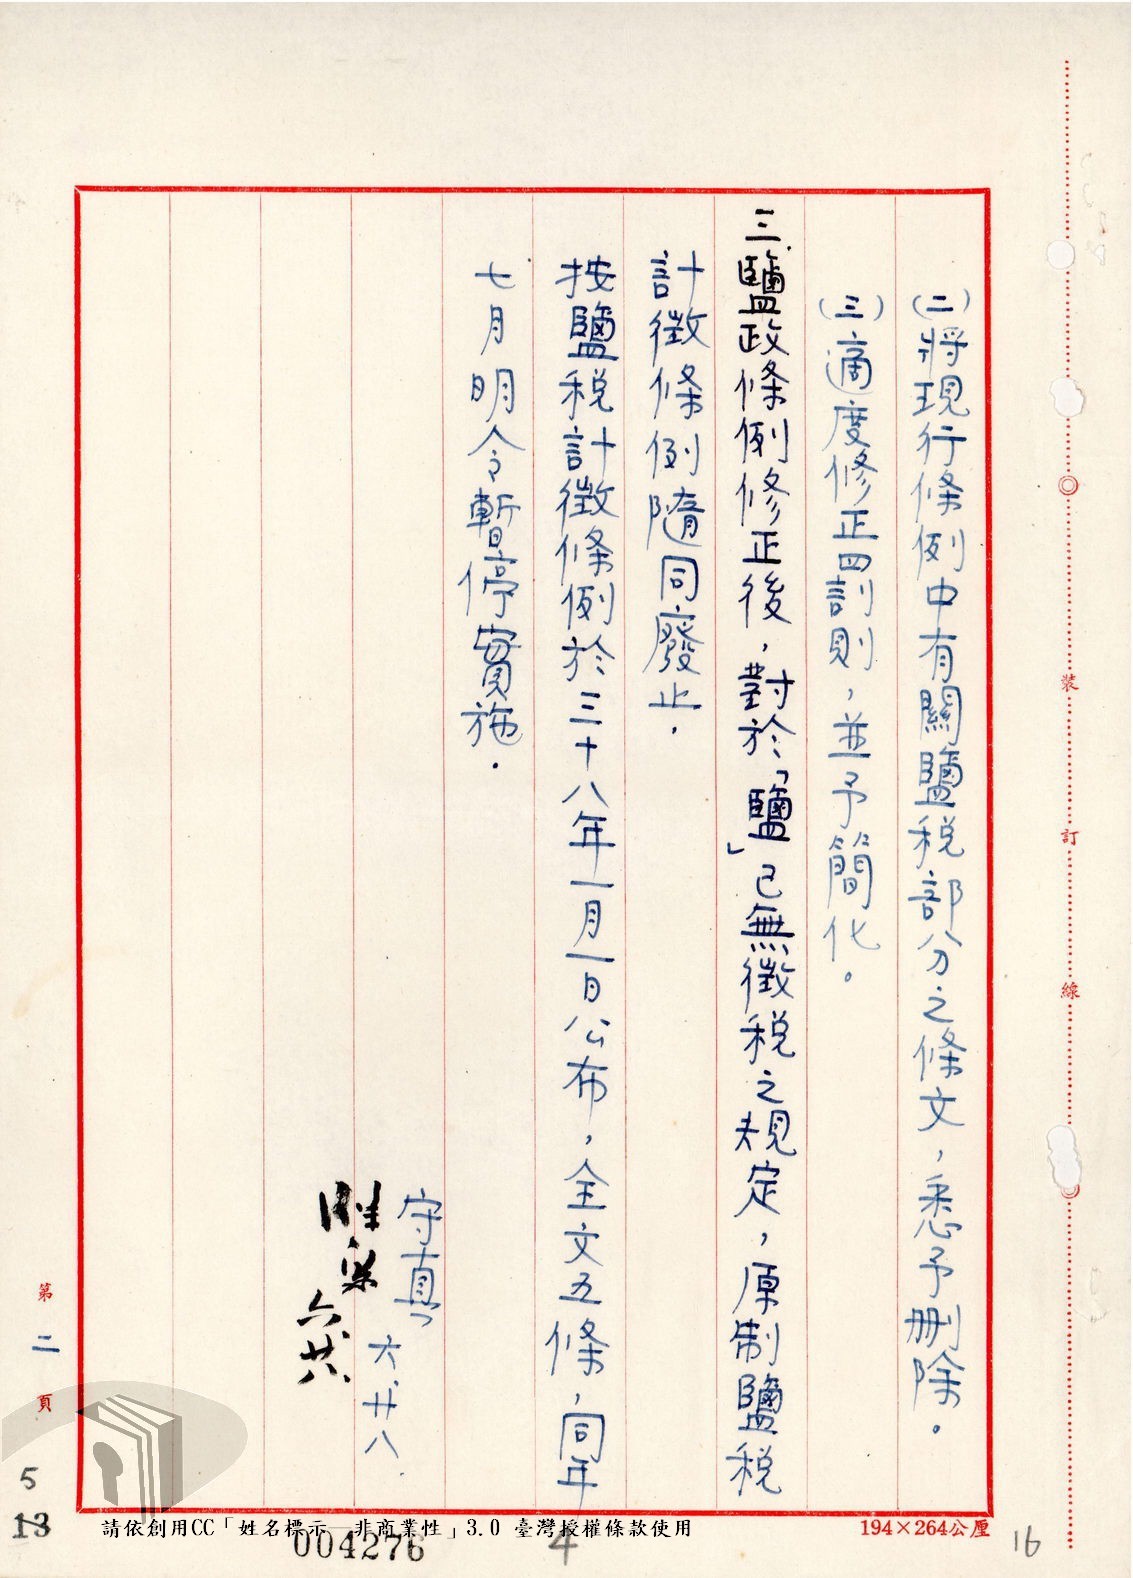 (二)將現行條例中有關鹽稅部分之條文，悉予刪除。
(三)適度修正罰則，並予簡化。
三.鹽政條例修正後，對於「鹽」已無徵稅之規定，原制鹽稅
計徵條例隨同廢止.
按鹽稅計徵條例於三十八年一月一日公布，全文五條，同年
七月明令暫停實施.
守真
六.廿八.
六.廿八
裝
訂
線
第二頁
5
13
請依創用CC「姓名標示─非商業性」3.0 臺灣授權條款使用
004276
4
194×264公厘
16